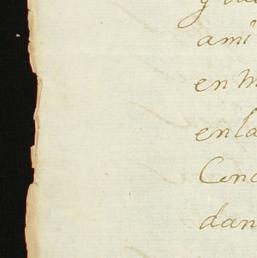 ami
en
enla
Conc
dan